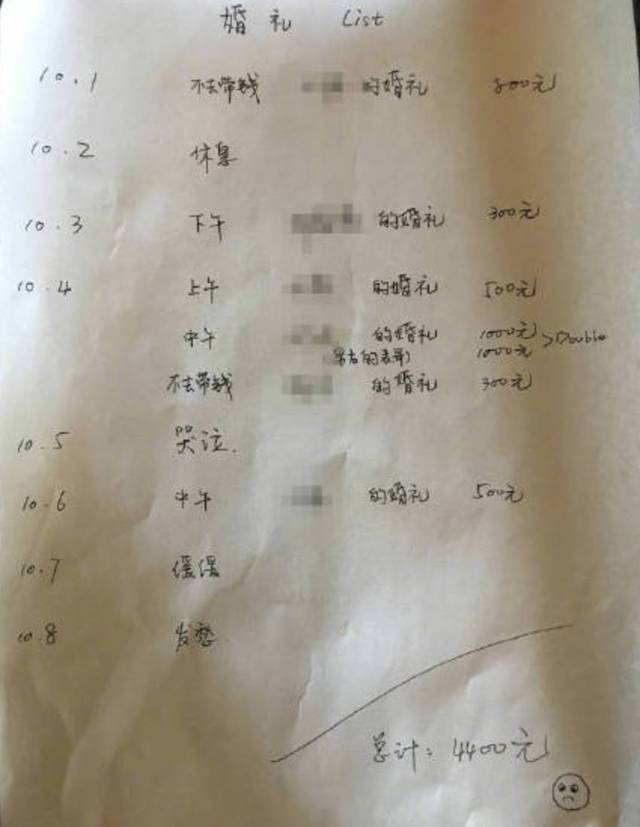 婚礼 List
10.1 不去带钱 的婚礼 800元
10.2 休息
10.3 下午 的婚礼 300元
10.4 上午 的婚礼 500元
中午 的婚礼 1000元 >Double
的表哥) 1000元
不去带钱 的婚礼 300元
10.5 哭泣.
10.6 中午 的婚礼 500元
10.7 缓缓
10.8 发愁.
总计: 4400元